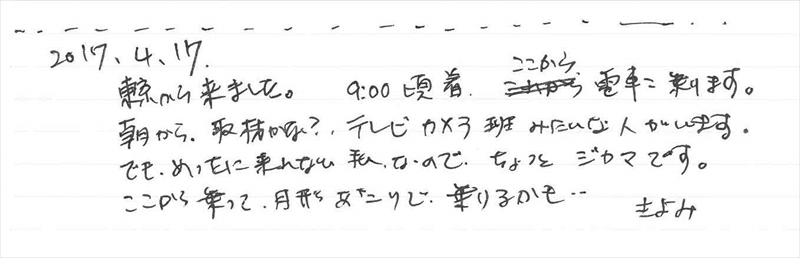 2017.4.17.
東京から来ました。 9:00頃着. ここから 電車に乗ります。
朝から、取材かな?、テレビカメラ班みたいな人がいます。
でも、めったに来れない私、なので、ちょっと ジカマです。
ここから乗って、月形あたりで、乗りるかも‥
きよみ